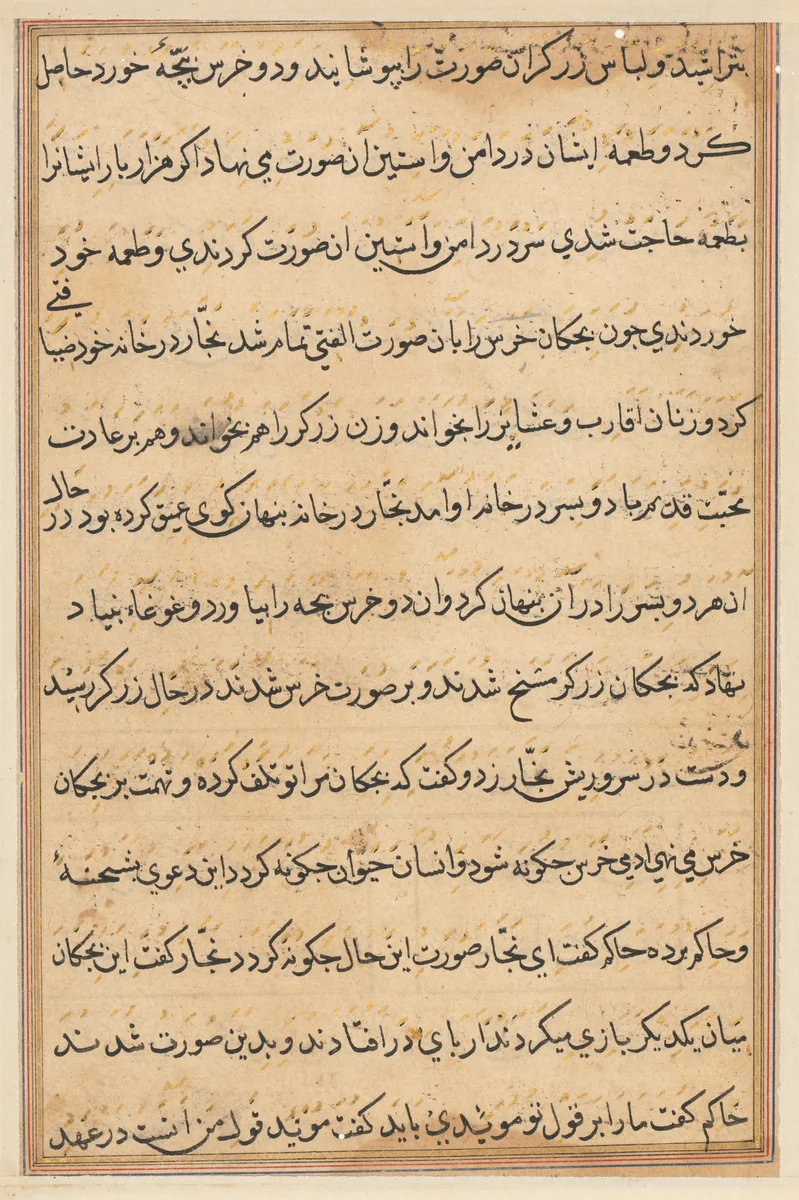 بتراشید و لباس زرکر آن صورت را بپوشانید و دو خرس بچّهٔ خورد حاصل
کرد و طعمه ایشان در دامن و استین ان صورت می نهاد اکر هزار بار ایشانرا
بطعمه حاجت شدی سر در دامن و آستین ان صورت کردندی و طعمه خود
خوردندی جون بجکان خرس را بان صورت الفتی تمام شد نجّار در خانه خود ضیافتی
کرد و زنان اقارب و عشایر را بخواند و زن زرکر را هم بخواند و هم بر عادت
محبّت قدیم با دو بسر در خانه او امد نجّار در خانه بنهان کوی عمیق کرده بود در حال
آن هر دو بسر را در آن بنهان کرد و ان دو خرس بجه را بیاورد و غوغاء بنیاد
نهاد که بجکان زرکر مسخ شدند و بر صورت خرس شدند در حال زرکر رسید
و دست در سر و ریش نجّار زد و کفت که بجکان مرا تو تلف کرده و تهمت بر بجکان
خرس می نهی ادمی خرس جکونه شود و انسان حیوان جکونه کردد این دعوی بشحنهٔ
و حاکم برده حاکم کفت ای نجّار صورت این حال جکونه کردد نجّار کفت این بجکان
میان یکدیکر بازی میکردند از بای در افتادند و بدین صورت شدند
حاکم کفت ما را بر قول تو مویّدی باید کفت موید قول من انست در عهد